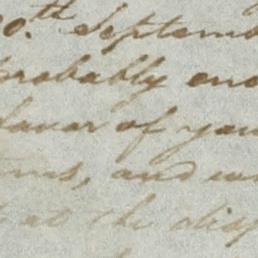 0.th Septemb
probably enc
favor of you
and
at the disp